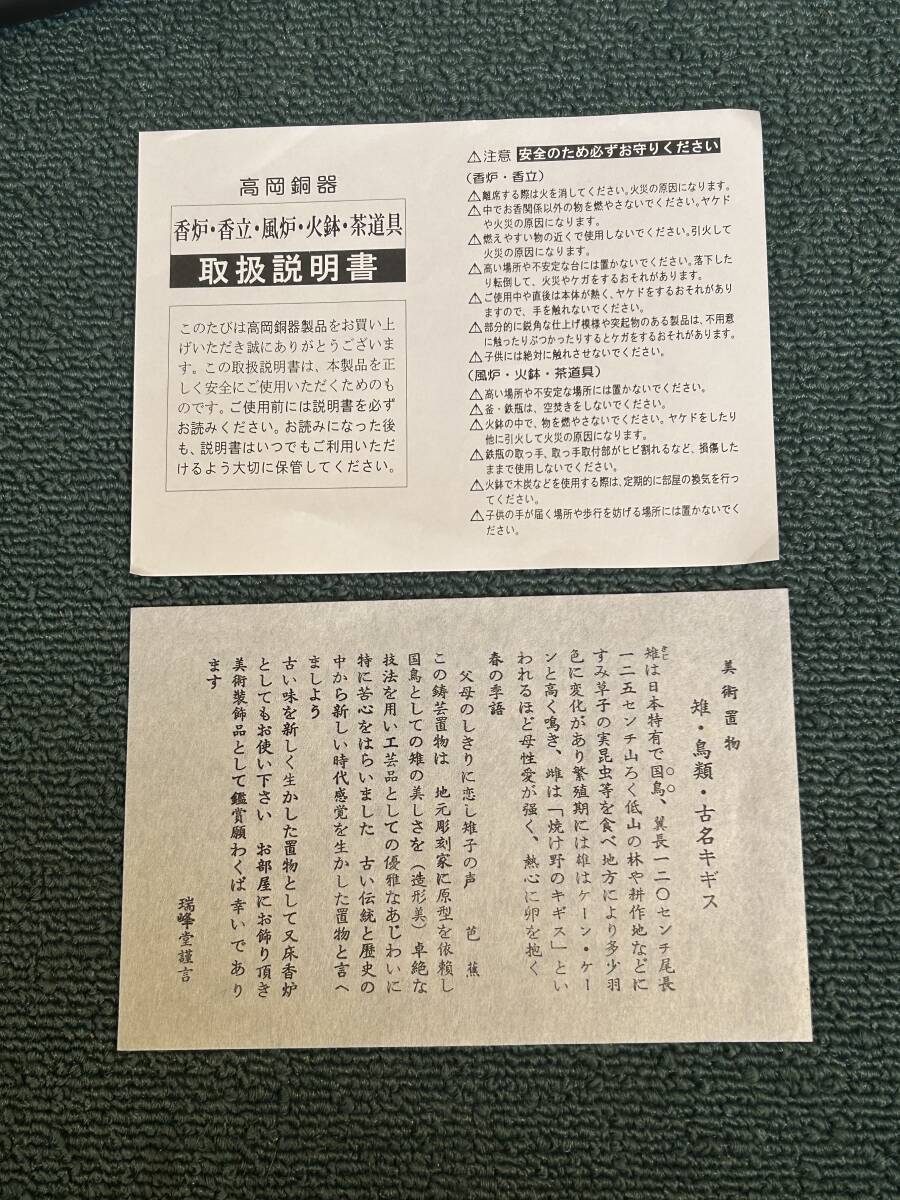 高岡銅器
香炉・香立・風炉・火鉢・茶道具
取扱説明書
このたびは高岡銅器製品をお買い上
げいただき誠にありがとうございま
す。この取扱説明書は、本製品を正
しく安全にご使用いただくためのも
のです。ご使用前には説明書を必ず
お読みください。お読みになった後
も、説明書はいつでもご利用いただ
けるよう大切に保管してください。
⚠注意 安全のため必ずお守りください
(香炉・香立)
⚠離席する際は火を消してください。火災の原因になります。
⚠中でお香関係以外の物を燃やさないでください。ヤケド
や火災の原因になります。
⚠燃えやすい物の近くで使用しないでください。引火して
火災の原因になります。
⚠高い場所や不安定な台には置かないでください。落下した
り転倒して、火災やケガをするおそれがあります。
⚠ご使用中や直後は本体が熱く、ヤケドをするおそれがあり
ますので、手を触れないでください。
⚠部分的に鋭角な仕上げ模様や突起物のある製品は、不用意
に触ったりぶつかったりするとケガをするおそれがあります。
⚠子供には絶対に触れさせないでください。
(風炉・火鉢・茶道具)
⚠高い場所や不安定な場所には置かないでください。
⚠釜・鉄瓶は、空焚きをしないでください。
⚠火鉢の中で、物を燃やさないでください。ヤケドをしたり
他に引火して火災の原因になります。
⚠鉄瓶の取っ手、取っ手取付部がヒビ割れるなど、損傷した
ままで使用しないでください。
⚠火鉢で木炭などを使用する際は、定期的に部屋の換気を行っ
てください。
⚠子供の手が届く場所や歩行を妨げる場所には置かないでく
ださい。
美術置物
雉・鳥類・古名キギス
雉きじは日本特有で国鳥、翼長一二〇センチ尾長
一二五センチ山ろく低山の林や耕作地などに
すみ草子の実昆虫等を食べ地方により多少羽
色に変化があり繁殖期には雄はケーン・ケー
ンと高く鳴き、雌は「焼け野のキギス」とい
われるほど母性愛が強く、熱心に卵を抱く
春の季語
父母のしきりに恋し雉子の声 芭蕉
この鋳芸置物は 地元彫刻家に原型を依頼し
国鳥としての雉の美しさを(造形美)卓絶な
技法を用い工芸品としての優雅なあじわいに
特に苦心をはらいました 古い伝統と歴史の
中から新しい時代感覚を生かした置物と言へ
ましよう
古い味を新しく生かした置物として又床香炉
としてもお使い下さい お部屋にお飾り頂き
美術装飾品として鑑賞願わくば幸いであり
ます
瑞峰堂謹言